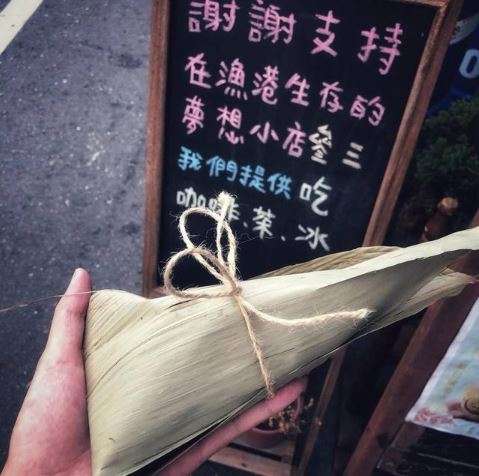 謝謝支持
在漁港生存的
夢想小店參三
我們提供吃
咖啡、茶、冰